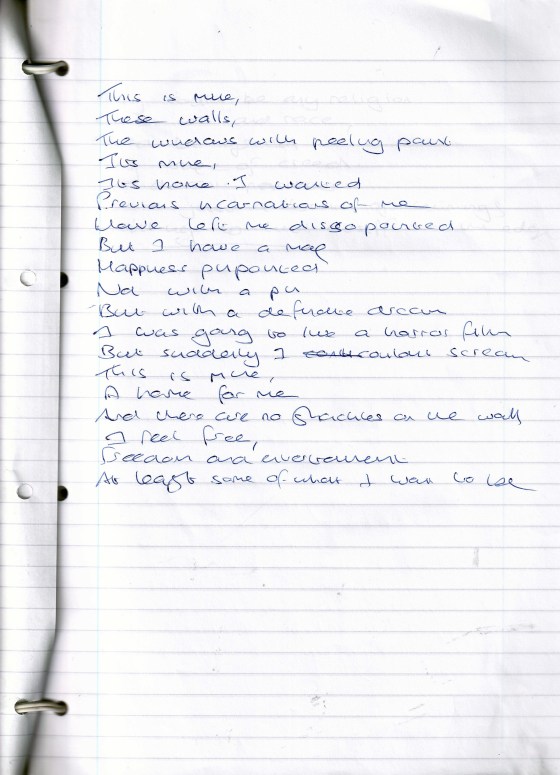 This is mine,
These walls,
The windows with peeling paint
Its mine,
Its home. I wanted
Previous incarnations of me
Have left me disappointed
But I have a map
Happiness pinpointed
Not with a pin
But with a definite dream
I was going to live a horror film
But suddenly I couldnt scream
This is mine,
A home for me
And there are no shackles on the wall
I feel free,
Freedom and environment
At least some of what I want to be